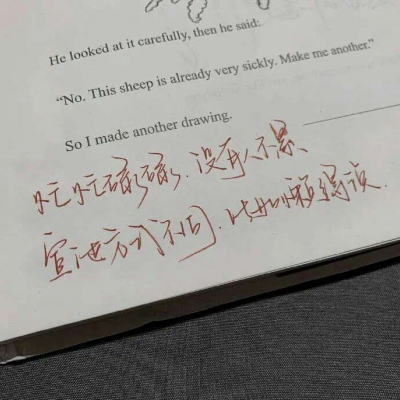 He looked at it carefully, then he said:
“No. This sheep is already very sickly. Make me another.”
So I made another drawing.
忙忙碌碌.没有人不累、
宣泄方式不同.比如懒得